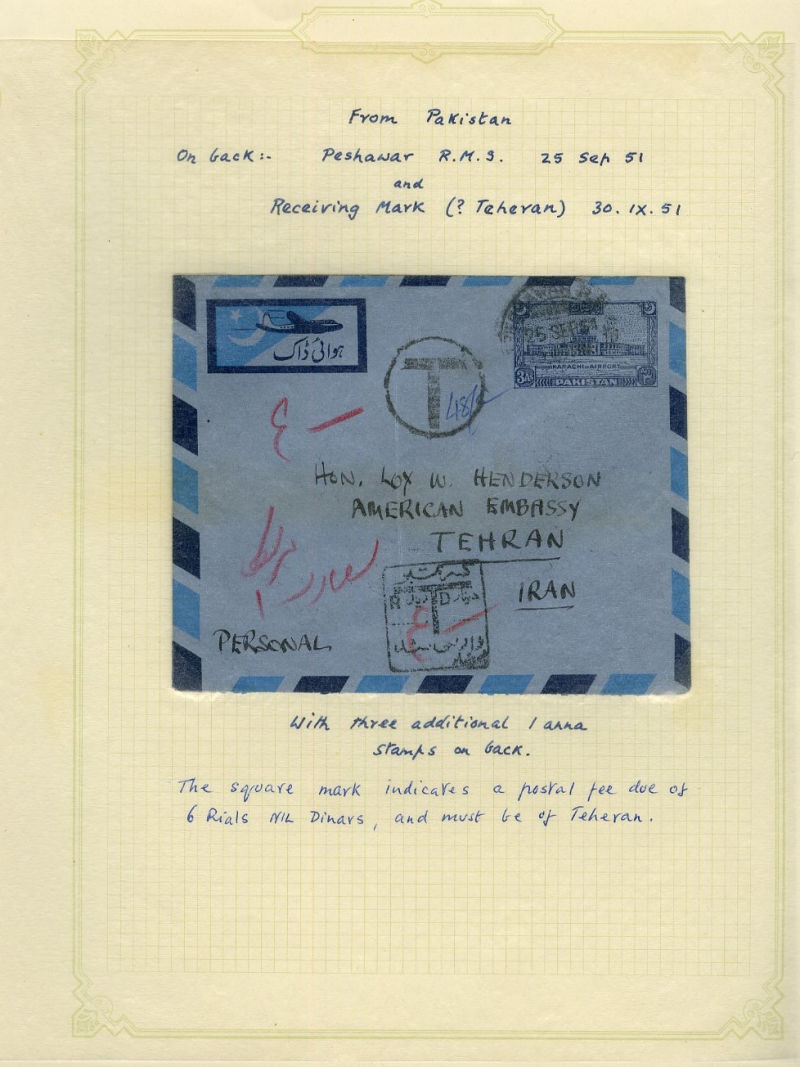 From Pakistan
On back:- Peshawar R.M.S. 25 Sep 51
and
Receiving Mark (? Teheran) 30. IX. 51
ہوائی ڈاک
25 SEP 51
KARACHI AIRPORT
3As
PAKISTAN
T
48/
HON. LOY W. HENDERSON
AMERICAN EMBASSY
TEHRAN
IRAN
R T D
ریال دینار
PERSONAL
With three additional 1 anna
stamps on back.
The square mark indicates a postal fee due of
6 Rials NIL Dinars, and must be of Teheran.